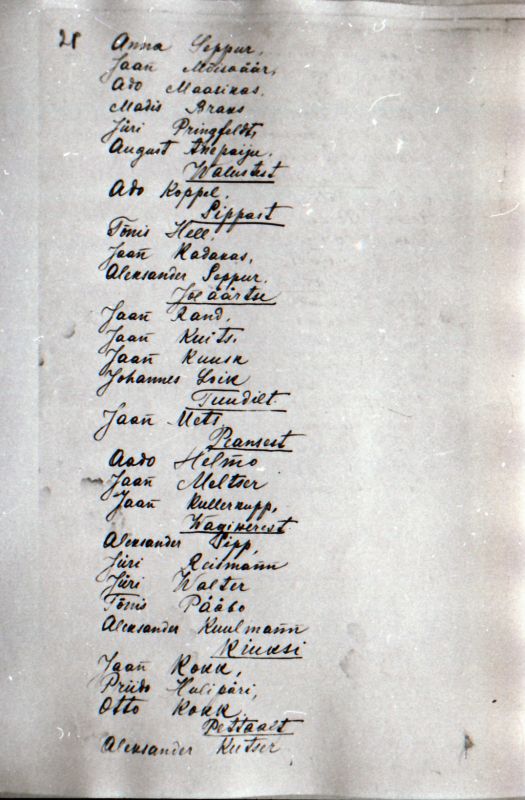 28
Anna Seppur,
Jaan̄ Mõisaäär,
Ado Maasikas,
Madis Braks
Jüri Pringfeldt,
August Anepaiju.
Walustest
Ado Koppel,
Sippast
Tõnis Hell,
Jaan̄ Kadakas,
Aleksander Seppur.
Jõeäärtse
Jaan̄ Rand,
Jaan̄ Kuits,
Jaan̄ Kuusk
Johannes Loik
Tuudilt
Jaan̄ Mets,
Peansest
Aado Helm̄o
Jaan̄ Meltser
Jaan̄ Kullerkupp,
Waginerest
Aleksander Sipp,
Jüri Reisman̄n
Jüri Walter
Tõnis Pääbo
Aleksander Kuulman̄n
Kiuksi
Jaan̄ Kokk,
Priido Hulipäri,
Otto Kokk
Pettaalt
Aleksander Kutser